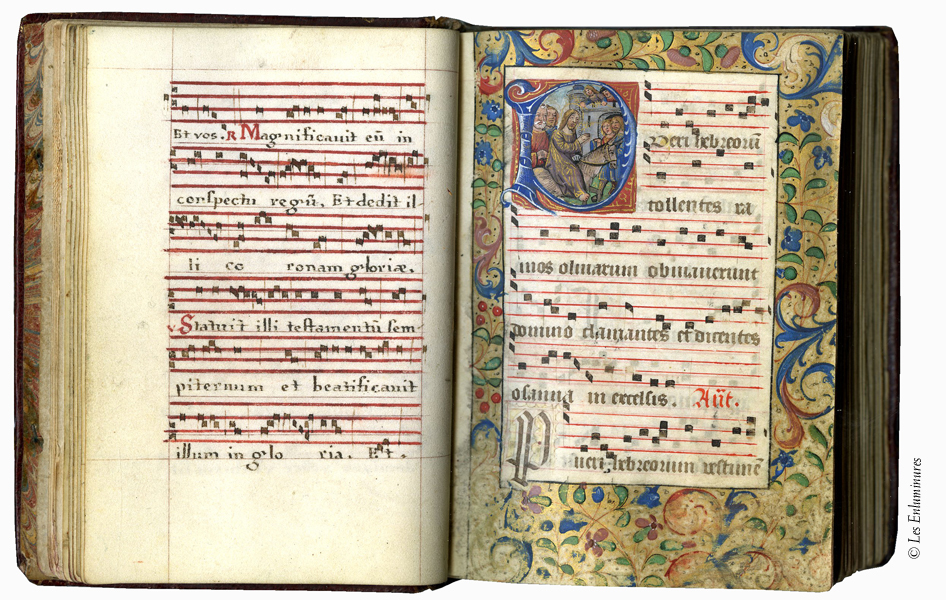 Et vos. R Magnificauit eũ in
conspectu regũ, Et dedit il-
li co ronam gloriæ.
v Statuit illi testamentũ sem-
piternum et beatificauit
illum in glo ria. Et.
Pueri hebreorũ
tollentes ra
mos oliuarum obuiauerunt
domino clamantes et dicentes
osanna in excelsis Añt.
Pueri hebreorum vestime
© Les Enluminures